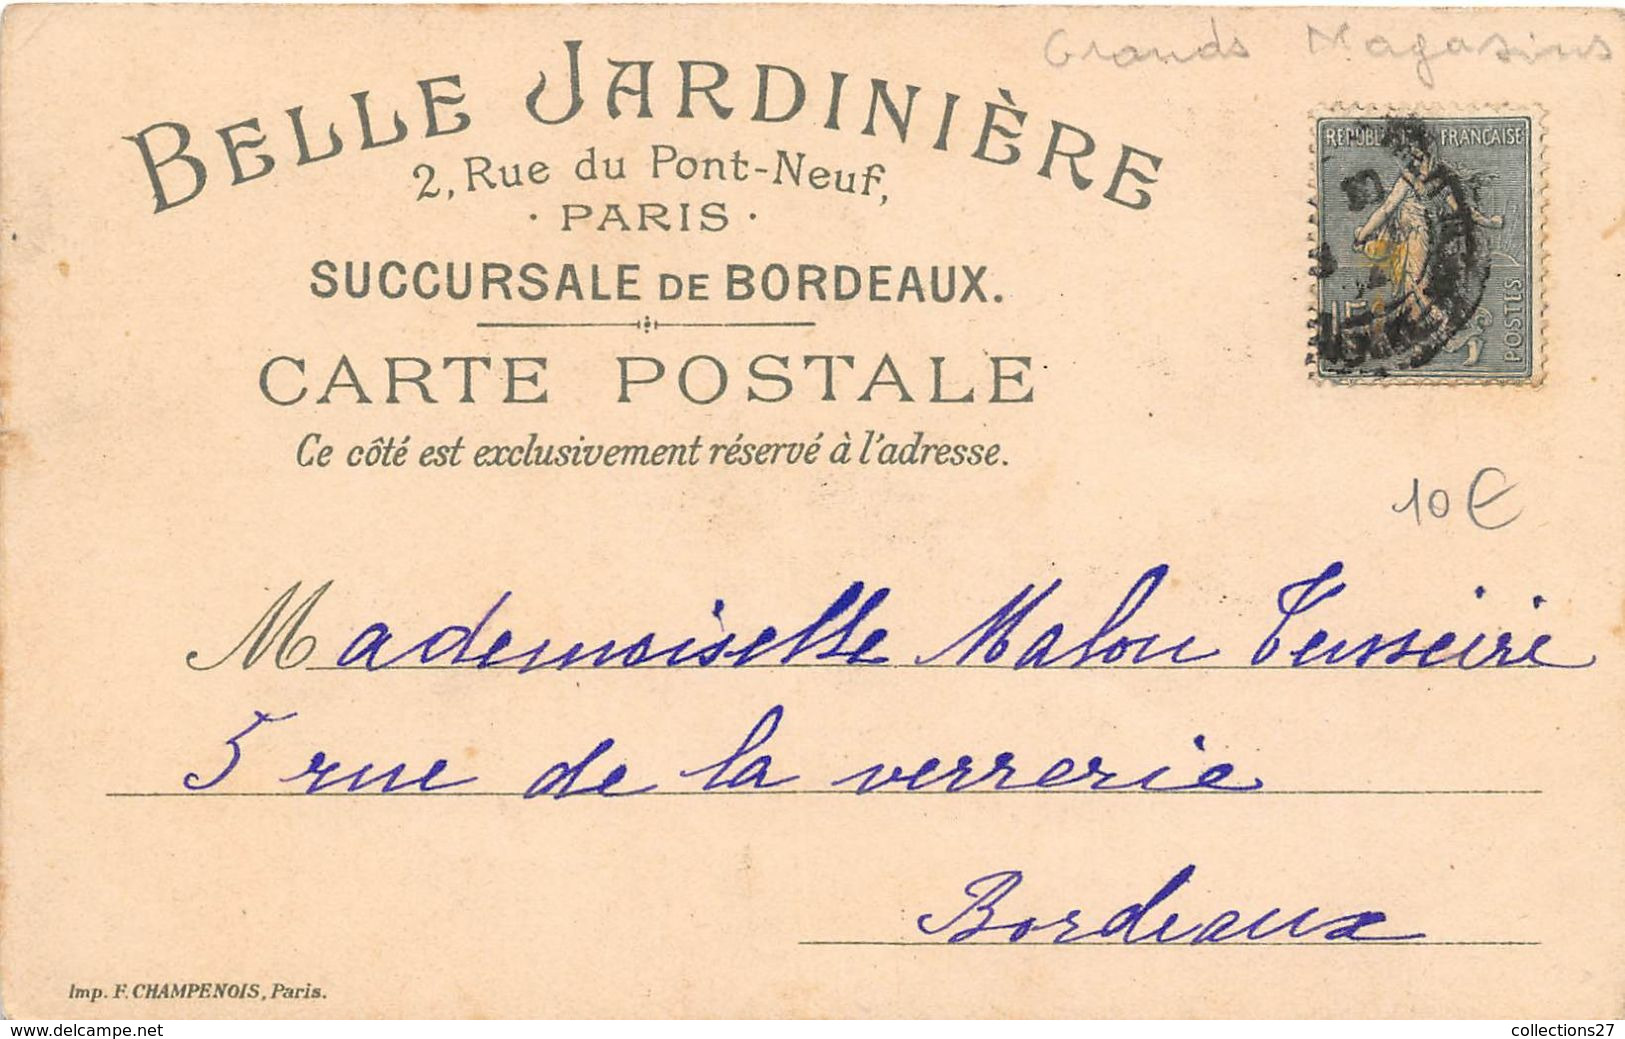 Grands Magasins
BELLE JARDINIÈRE
2, Rue du Pont-Neuf,
· PARIS ·
SUCCURSALE DE BORDEAUX.
CARTE POSTALE
Ce côté est exclusivement réservé à l'adresse.
RÉPUBLIQUE FRANÇAISE
15
POSTES
10€
Mademoiselle Malou Teisseire
5 rue de la verrerie
Bordeaux
Imp. F. CHAMPENOIS, Paris.
www.delcampe.net
collections27